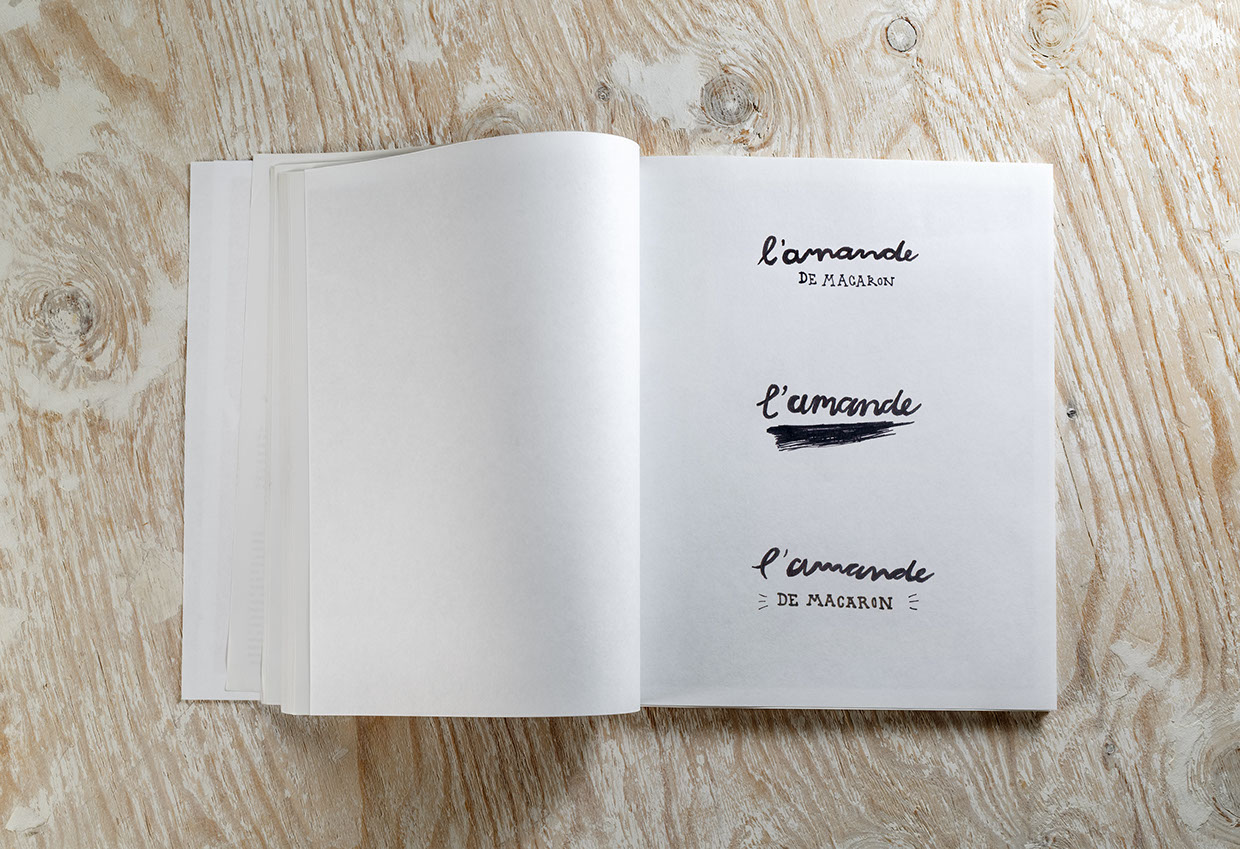 l'amande
DE MACARON
l'amande
l'amande
DE MACARON